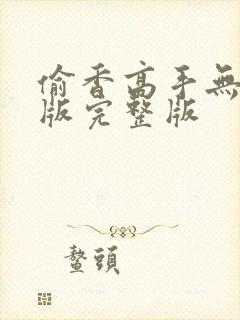 偷香高手無
版完整版
鼇頭